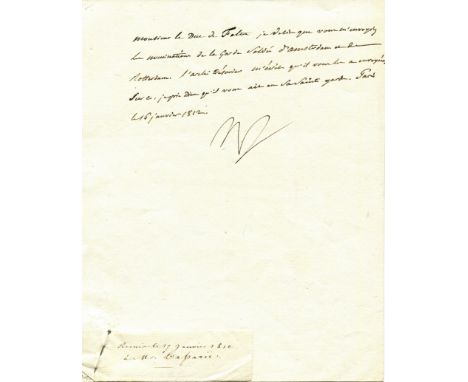 monsieur le Duc de Feltre je désire que vous m'envoyiez
les nominations de la Garde Soldée d'Amsterdam et de
Rotterdam. l'archi trésorier m'écrit qu'il vous les a envoyées
Sur ce, je prie Dieu qu'il vous ait en Sa Sainte garde. Paris
le 16 janvier 1812.
Np
Renvoi le 17 janvier 1812
à Mr.